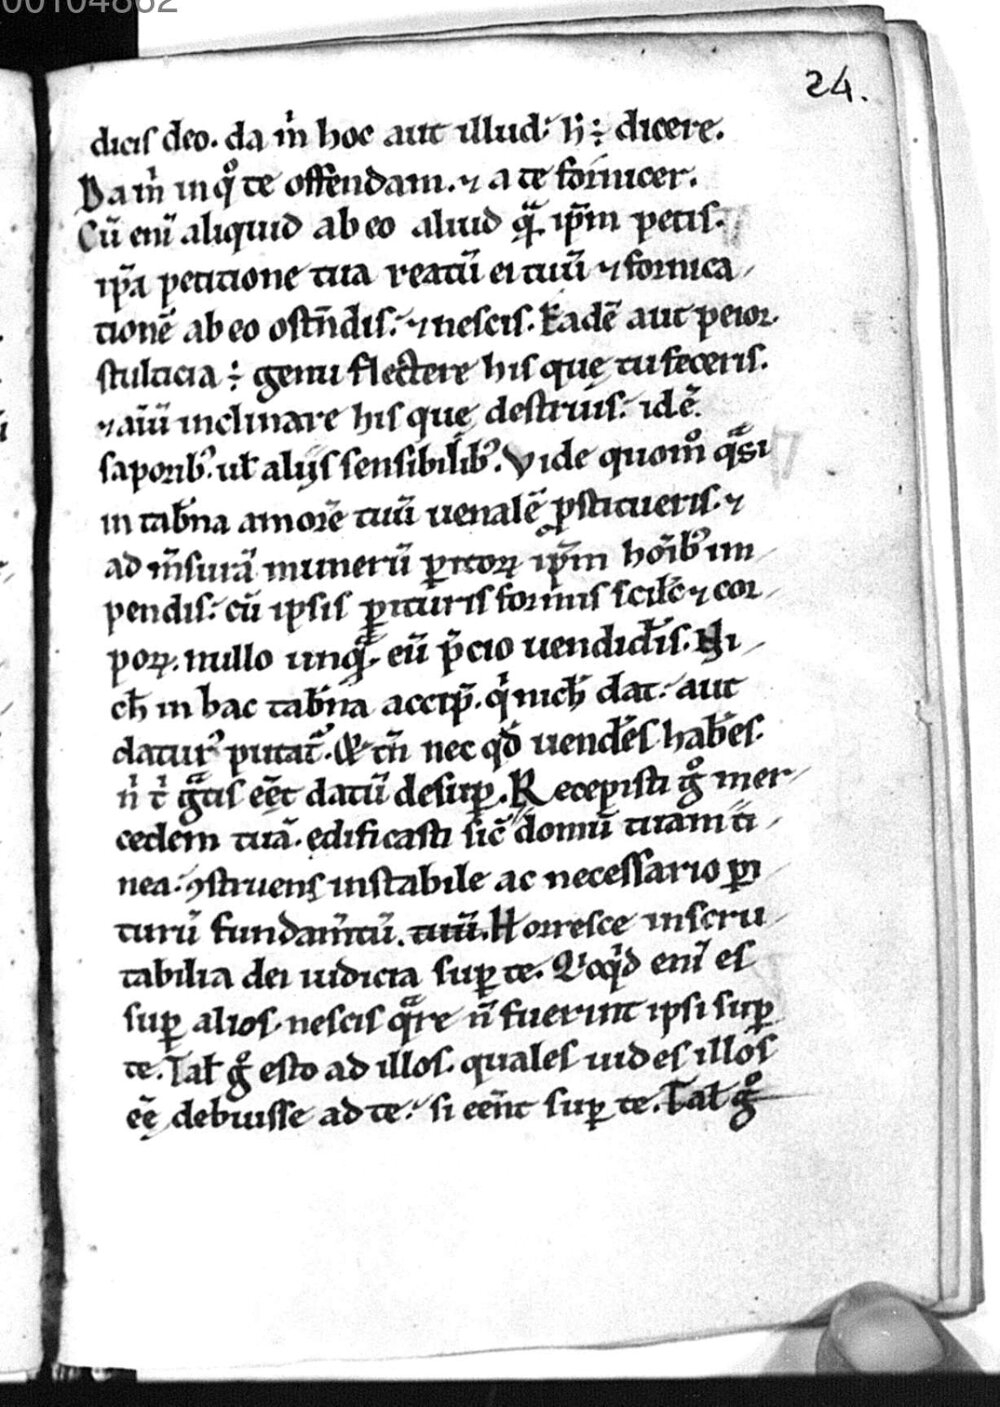 00104862
24.
dicis deo. da m̍ hoc aut illud: h̄ ÷ dicere.
Da m̍ in qͦ te offendam. ⁊ a te fornicer.
Cū eni̅ aliquid ab eo aliud qᷓ ip̄m petis.
ip̄a petitione tua reatū ei tuū ⁊ fornica/
tionē ab eo ostn̄dis. ⁊ nescis. Eadē aut peior.
stulticia ÷ genu flectere his que tu feceris.
⁊ aīū inclinare his que destruis. idē.
saporibꝰ. ul̄ alijs sensibilibꝰ. Vide quom̊ qᷓsi
in tab̄na amorē tuū uenalē ꝓstitueris. ⁊
ad m̄surā munerū ꝑitoꝝ ip̄m ho̅ibꝰ im/
pendis. cū ipsis ꝑituris formis scil̄c ⁊ cor/
poꝝ. nullo unqᷓ. eū p̄cio uendid̄is. Hi/
ch̄ in hac tab̄na accip̄. q̍ nich̄ dat. aut
datur̍ putat̄. & tn̄ nec qd̄ uend̄es hab̄es.
n̍ t̍ gᷓtis eēt datū desuꝑ. Recepisti gͦ mer/
cedem tuā. edificasti sic̄ domū tuam ti/
nea. ꝯstruens instabile ac necessario ꝑi/
turū fundam̄tū. tuū. Horresce inscru/
tabilia dei iudicia suꝑ te. Qͦcqͥd eni̅ es
suꝑ alios. nescis qᷓre n̄ fuerint ipsi suꝑ
te. Tal̄ gͦ esto ad illos. quales uides illos
eē debuisse ad te. si een̄t suꝑ te. Tal̄ gͦ